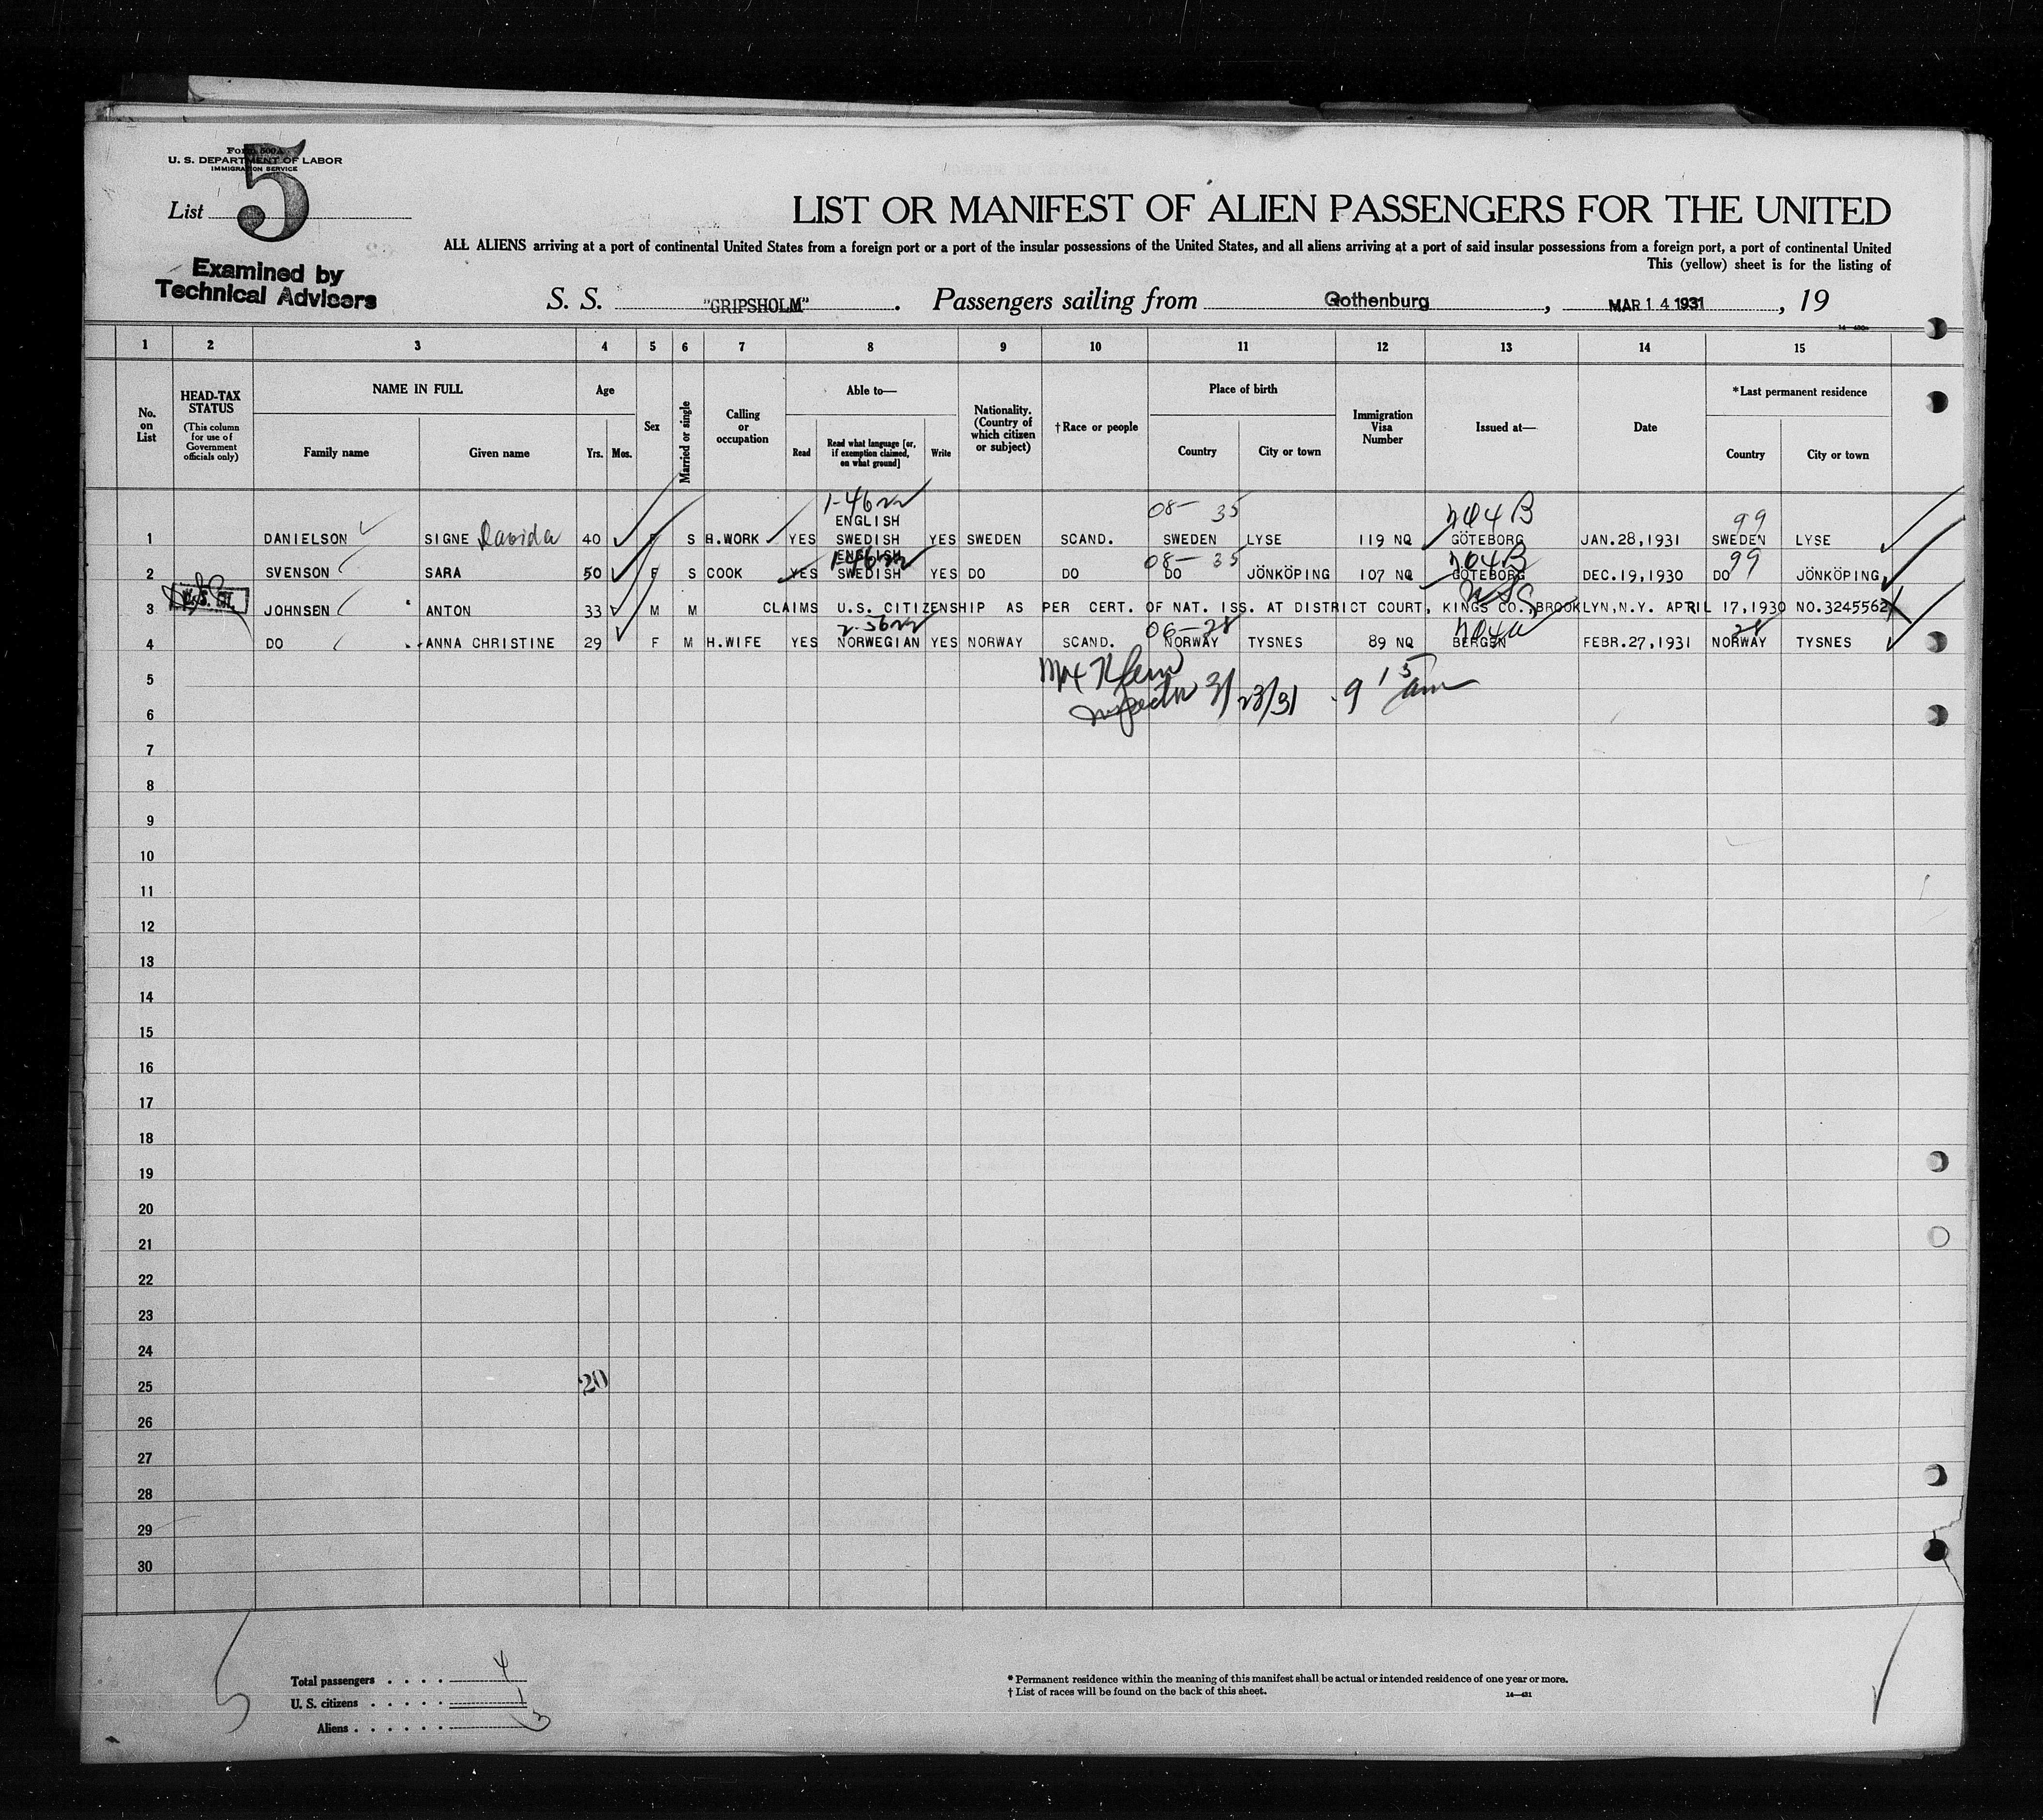 Form 500A
U. S. DEPARTMENT OF LABOR
IMMIGRATION SERVICE
List 5
LIST OR MANIFEST OF ALIEN PASSENGERS FOR THE UNITED
ALL ALIENS arriving at a port of continental United States from a foreign port or a port of the insular possessions of the United States, and all aliens arriving at a port of said insular possessions from a foreign port, a port of continental United
This (yellow) sheet is for the listing of
Examined by
Technical Advisers
S. S. "GRIPSHOLM". Passengers sailing from Gothenburg, MAR 14 1931, 19
1 2 3 4 5 6 7 8 9 10 11 12 13 14 15
No. on List
HEAD-TAX STATUS
(This column for use of Government officials only)
NAME IN FULL
Family name Given name
Age
Yrs. Mos.
Sex
Married or single
Calling or occupation
Able to—
Read Read what language [or, if exemption claimed, on what ground] Write
Nationality. (Country of which citizen or subject)
†Race or people
Place of birth
Country City or town
Immigration Visa Number
Issued at—
Date
*Last permanent residence
Country City or town
1-46 08- 35 704B 99
ENGLISH
1 DANIELSON SIGNE Davida 40 F S H.WORK YES SWEDISH YES SWEDEN SCAND. SWEDEN LYSE 119 NQ GÖTEBORG JAN.28,1931 SWEDEN LYSE
ENGLISH
1-46 08- 35 704B 99
2 SVENSON SARA 50 F S COOK YES SWEDISH YES DO DO DO JÖNKÖPING 107 NQ GÖTEBORG DEC.19,1930 DO JÖNKÖPING
3 JOHNSEN ANTON 33 M M CLAIMS U.S. CITIZENSHIP AS PER CERT. OF NAT. ISS. AT DISTRICT COURT, KINGS CO.,BROOKLYN,N.Y. APRIL 17,1930 NO.3245562
2-56 06-28 704a 28
4 DO ANNA CHRISTINE 29 F M H.WIFE YES NORWEGIAN YES NORWAY SCAND. NORWAY TYSNES 89 NQ BERGEN FEBR.27,1931 NORWAY TYSNES
5
Inspector 3/23/31 9 15 am
6
7
8
9
10
11
12
13
14
15
16
17
18
19
20
21
22
23
24
25 20
26
27
28
29
30
Total passengers . . . . . 4
U. S. citizens . . . . . 1
Aliens . . . . . . 3
* Permanent residence within the meaning of this manifest shall be actual or intended residence of one year or more.
† List of races will be found on the back of this sheet.
14—431